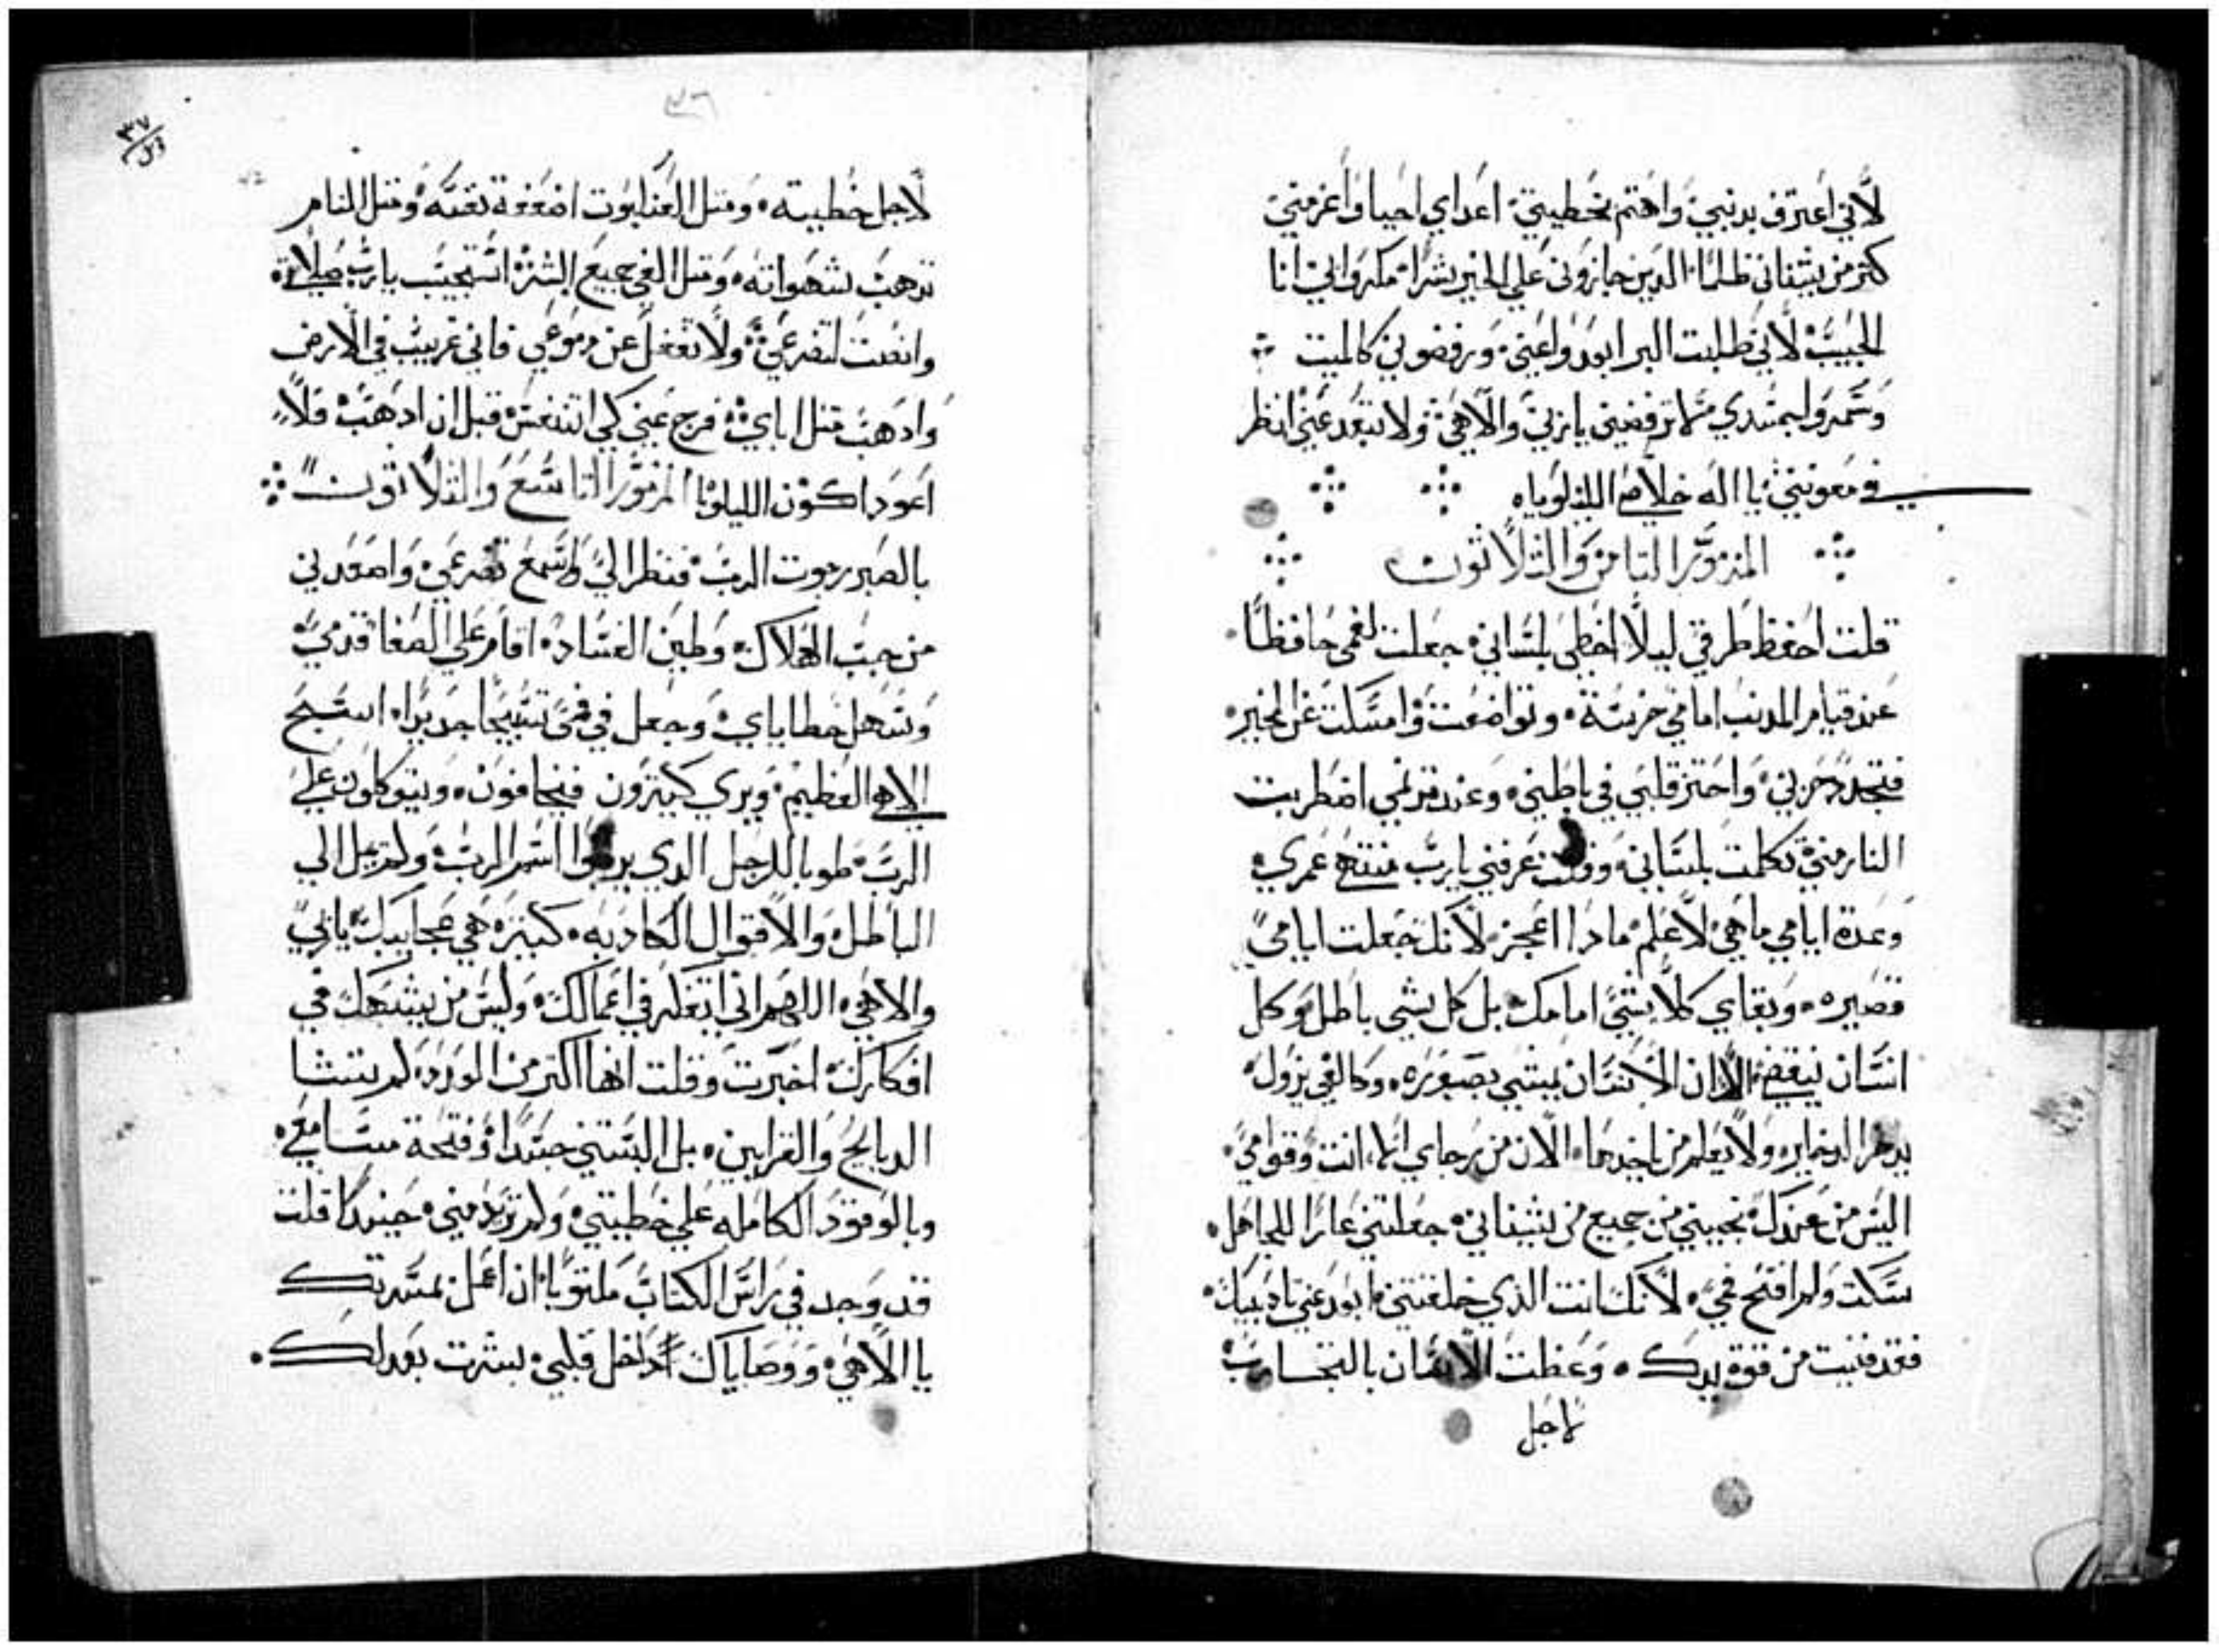 لأني اعترف بدنبي واهتم بخطيتي اعداي احيا واعز مني
كتر من يشناني ظلمًا الدين جازوني علي الخير شرًا مكروا بي انا
الحبيب لأني طلبت البر ابعدوا عني ورفضوني كالميت
وسمروا جسدي لا ترفضني يا ربي والاهي ولا تبعد عني انظر
في معونتي يا اله خلاصي الليلوياه
المزمور التامن والتلاتون
قلت احفظ طرقي ليلا اخطي بلساني جعلت لفمي حافظًا
عند قيام المدنب امامي خرست وتواضعت وامسكت عن الخير
فتجدد حزني واحتر قلبي في باطني وعند قرنمي اضطربت
النار مني تكلمت بلساني وقلت عرفني يارب منتهي عمري
وعدة ايامي ما هي لاعلم مادا اعجز لانك جعلت ايامي
قصيره وبقاي كلا شي امامك بل كل شي باطل وكل
انسان ينقضي الا ان الانسان يمشي بصوره وكالفي يزول
يدخر الدخاير ولا يعلم من ياخدها الان من رجاي الا انت وقوامي
اليس من عندك نجيني من جميع من يشيناني جعلتني عارًا للجاهل
سكت ولم افتح فمي لأنك انت الذي خلقتني ابعد عني تاديبك
فقد فنيت من قوة يدك وعظت الانسان بالتجارب
لاجل
٣٦
٣٧
لاجل خطيته ومتل العنكبوت اضعفة نفسه ومتل المنام
تدهب شهواته ومتل الفي جميع البشر استجيب يارب صلاتي
وانصت لتضرعي ولا تغفل عن دموعي فاني غريب في الارض
وادهب متل اباي فرج عني كي اتنفس قبل ان ادهب فلا
اعود اكون الليلويا المزمور التاسع والتلاتون
بالصبر رجوت الرب فنظر الي وسمع تضرعي واصعدني
من جب الهلاك وطين الفساد اقام علي الصفا قدمي
وسهل خطاياي وجعل في فمي تسبيحًا جديدًا اسبح
الاهي العظيم ويري كتيرون فيخافون ويتوكلون علي
الرب طوبا للرجل الدي يرجوا اسم الرب ولم يمل الي
الباطل والاقوال الكادبه كتيره هي عجايبك يا ربي
والاهي اللهم اني اتفكر في اعمالك وليس من يشبهك في
افكارك اخبرت وقلت انها اكتر من العدد لم تشا
الدبايح والقرابين بل البستني جسدًا وفتحة مسامعي
وبالوقود الكامله علي خطيتي ولم ترد مني حينيدًا قلت
قد وجد في راس الكتاب مكتوبًا ان اعمل بمسرتك
يا الاهي ووصاياك داخل قلبي بشرت بعدلك